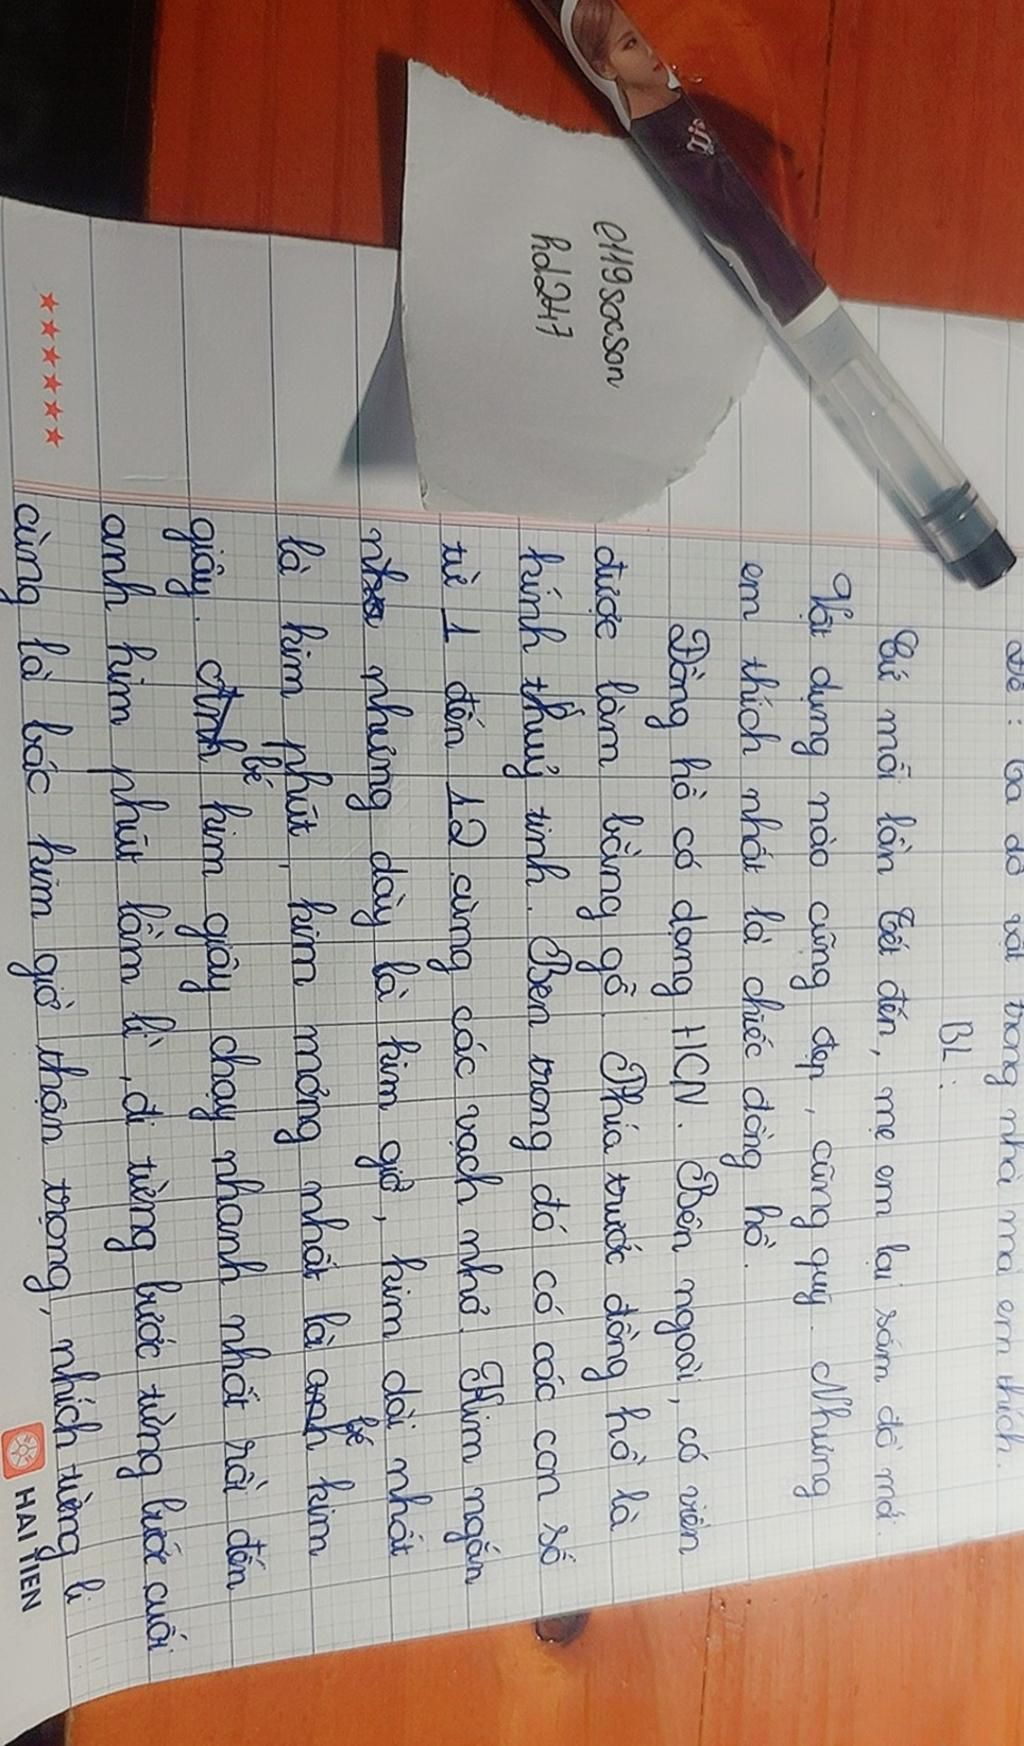 e119socson
hd247
Đề: Tả đồ vật trong nhà mà em thích.
BL:
Cứ mỗi lần Tết đến, mẹ em lại sắm đồ mới.
Vật dụng nào cũng đẹp, cũng quý. Nhưng
em thích nhất là chiếc đồng hồ.
Đồng hồ có dạng HCN. Bên ngoài, có viền
được làm bằng gỗ. Phía trước đồng hồ là
kính thuỷ tinh. Bên trong đó có các con số
từ 1 đến 12 cùng các vạch nhỏ. Kim ngắn
nhưng dày là kim giờ, kim dài nhất
là kim phút, kim mỏng nhất là bé kim
giây. bé kim giây chạy nhanh nhất rồi đến
anh kim phút lầm lì, đi từng bước từng bước cuối
cùng là bác kim giờ thận trọng, nhích từng li
HẢI TIẾN